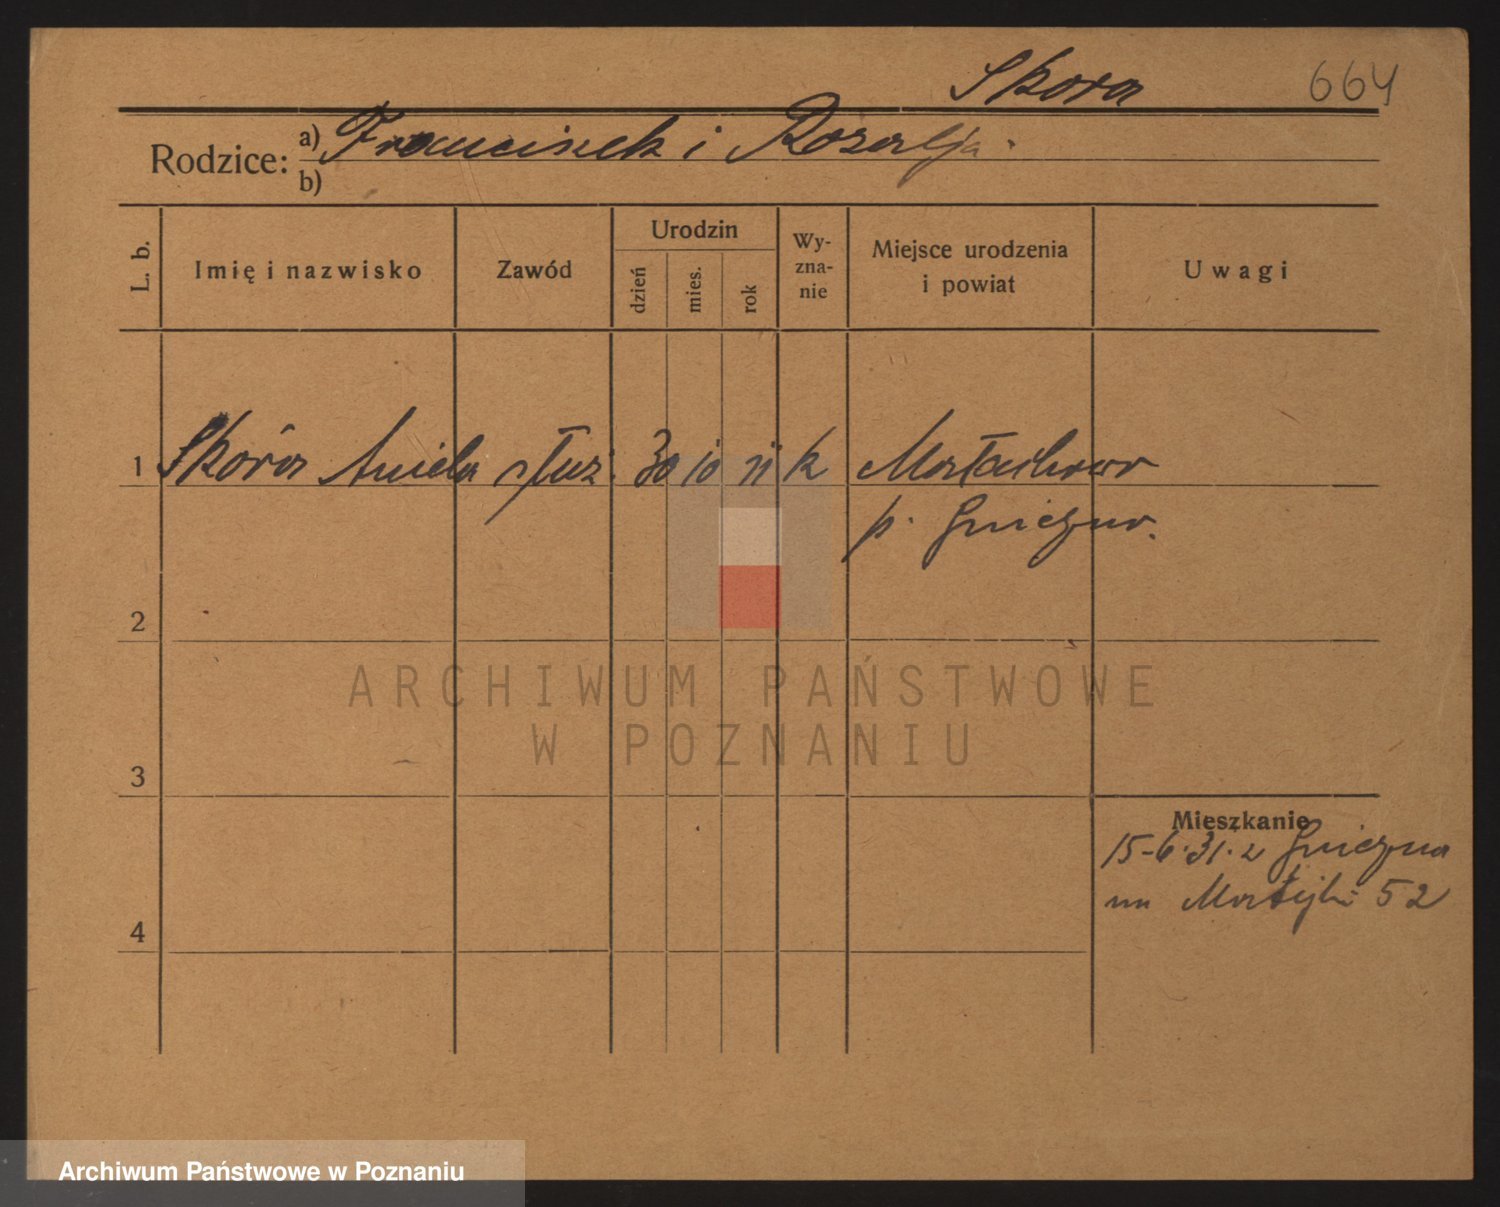 Skora 664
Rodzice: a) Franciszek i Rozalja.
b)
L. b. Imię i nazwisko Zawód Urodzin dzień mies. rok Wy-zna-nie Miejsce urodzenia i powiat Uwagi
1 Skóra Aniela służ. 30 10 11 k Małachowo
p. Gniezno.
2
ARCHIWUM PAŃSTWOWE
W POZNANIU
3
Mieszkanie
15-6.31. z Gniezna
na Matejki 52
4
Archiwum Państwowe w Poznaniu